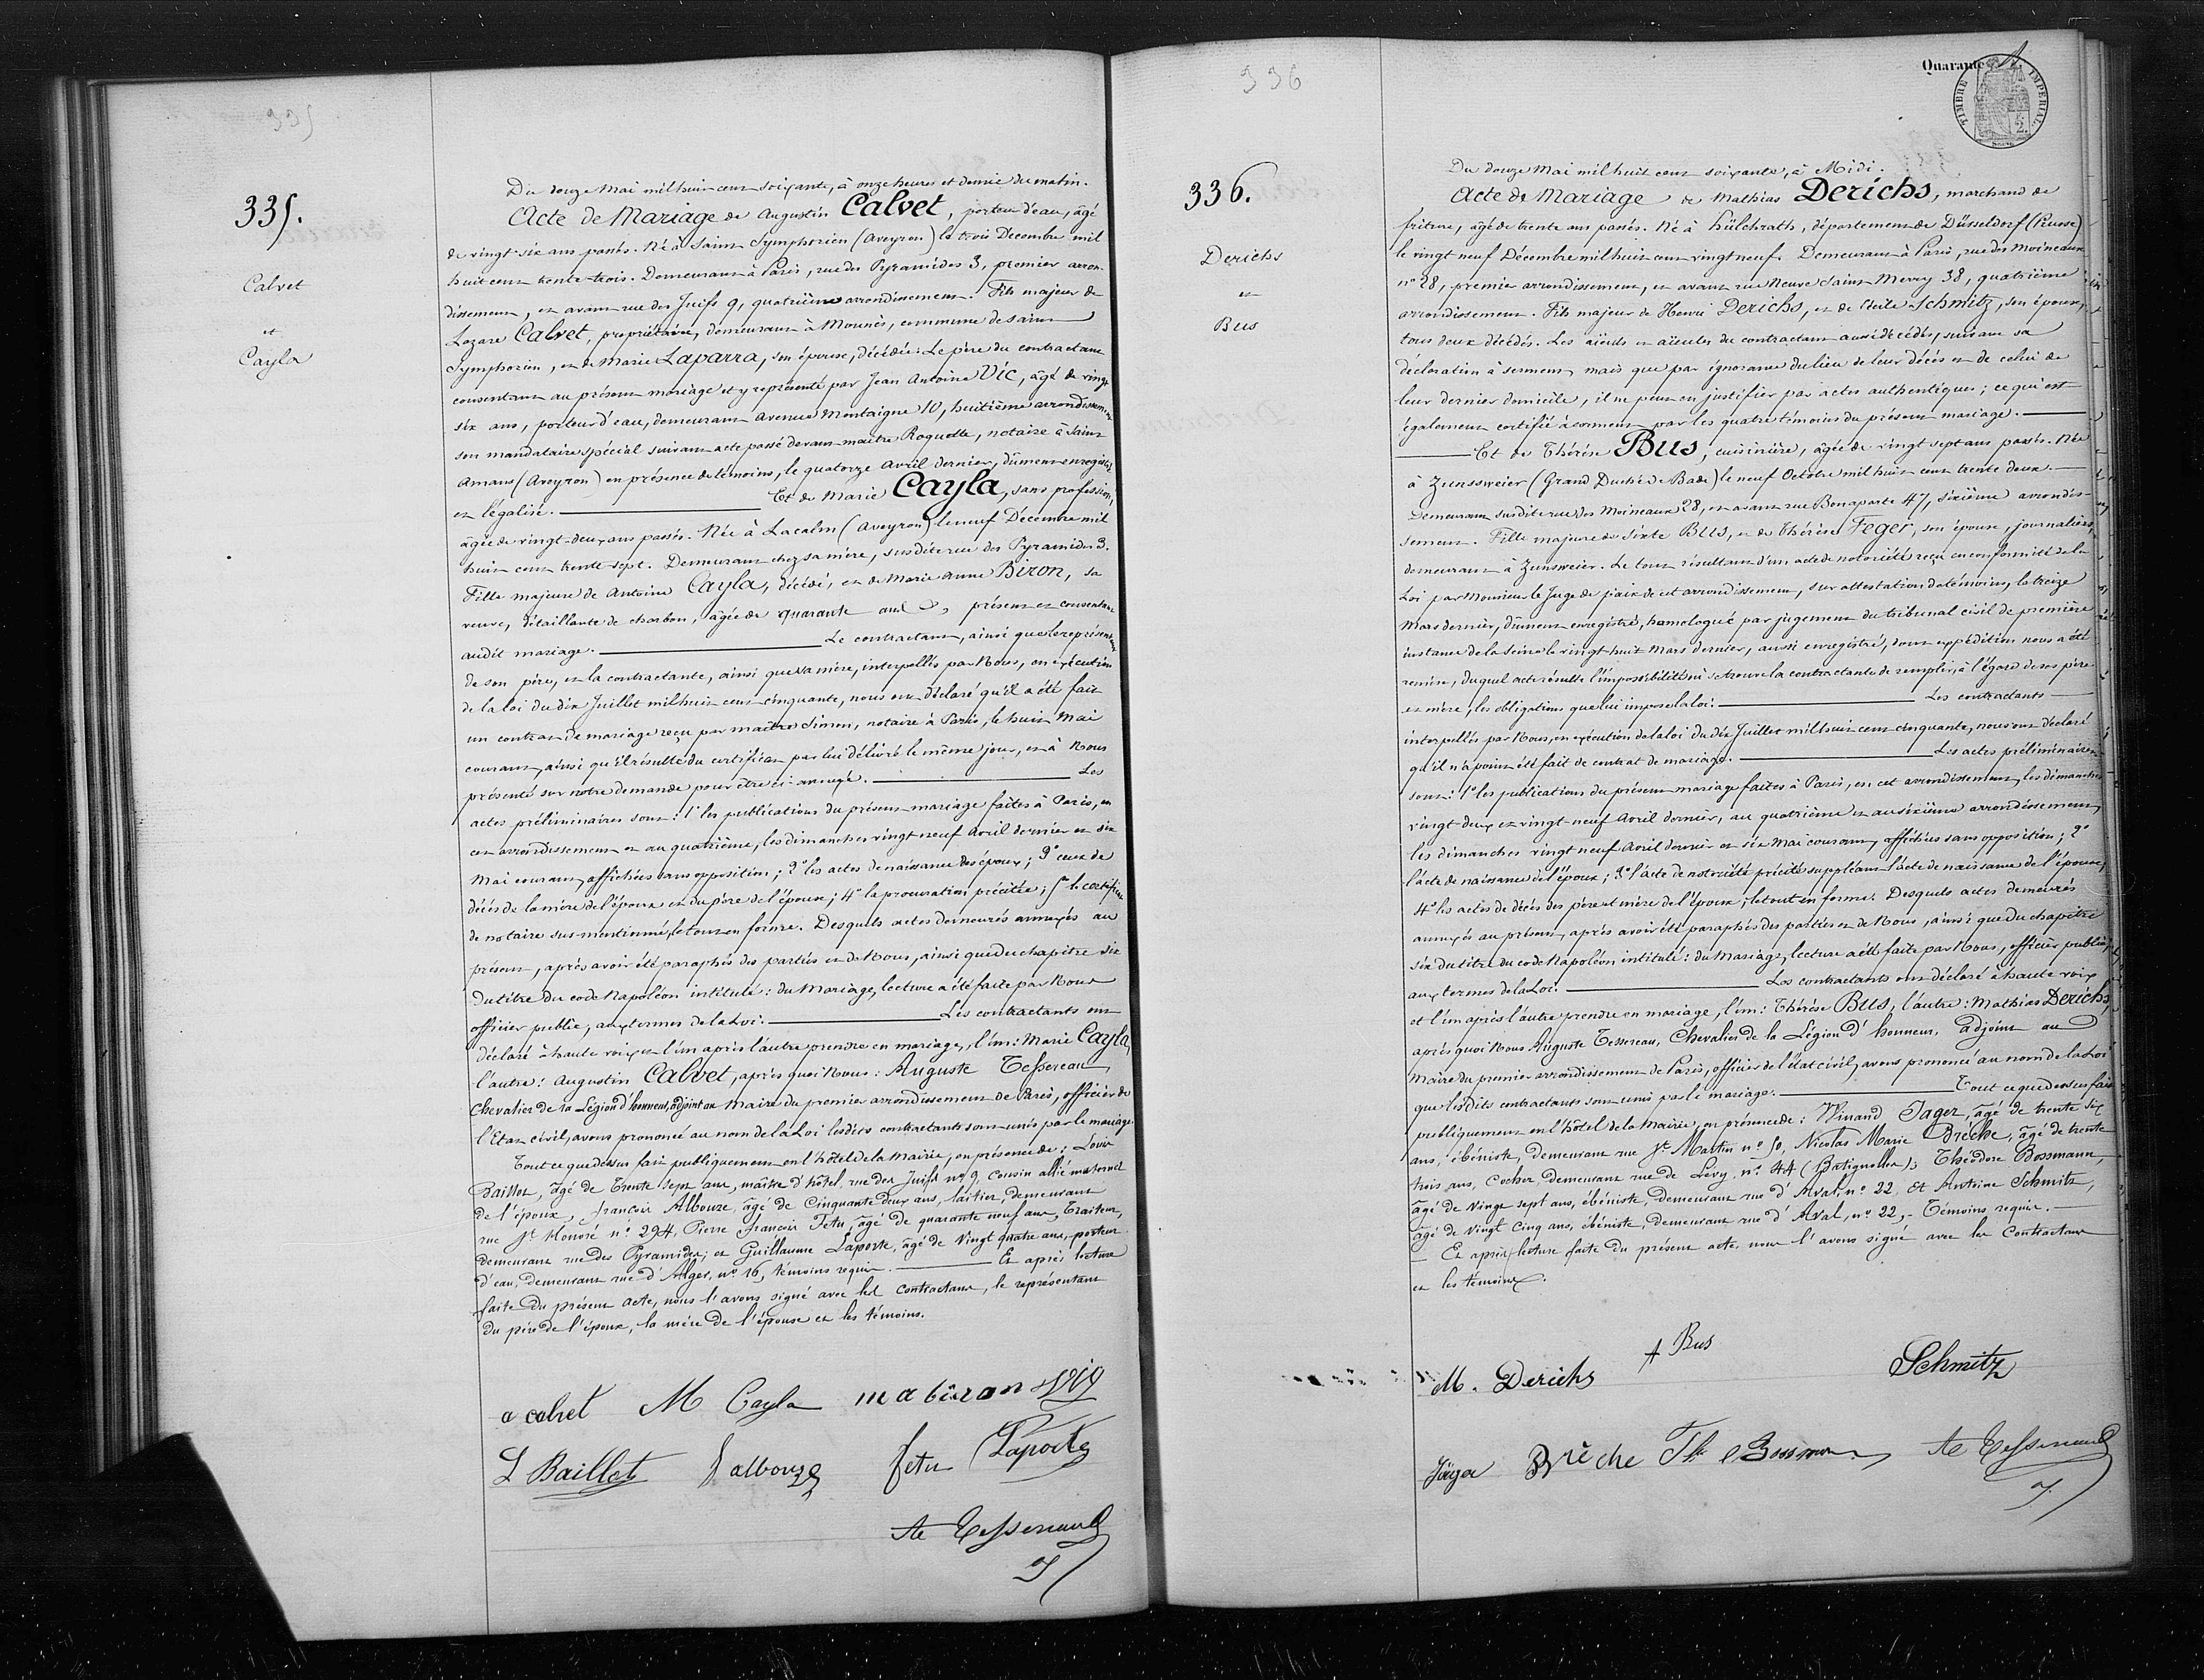 335
335.
Calvet
et
Cayla
Du douze Mai mil huit cent soixante, à onze heures et demie du matin.
Acte de Mariage de Augustin Calvet, porteur d'eau, âgé
de vingt-six ans passés. Né à Saint Symphorien (Aveyron) le trois Décembre mil
huit cent trente-trois. Demeurant à Paris, rue des Pyramides 3, premier arron-
dissement, et avant rue des Juifs 9, quatrième arrondissement. Fils majeur de
Lazare Calvet, propriétaire, demeurant à Mounès, commune de saint
Symphorien, et de Marie Laparra, son épouse, décédée. Le père du contractant
consentant au présent mariage et y représenté par Jean Antoine Vic, âgé de vingt
six ans, porteur d'eau, demeurant avenue Montaigne 10, huitième arrondissement
son mandataire spécial suivant acte passé devant maître Roquette, notaire à Saint
Amans (Aveyron) en présence de témoins, le quatorze avril dernier, dûment enregistré
et légalisé. Et de Marie Cayla, sans profession,
âgée de vingt-deux ans passés. Née à Lacalm (Aveyron) le neuf Décembre mil
huit cent trente-sept. Demeurant chez sa mère, susdite rue des Pyramides 3.
Fille majeure de Antoine Cayla, décédé, et de Marie Anne Biron, sa
veuve, détaillante de charbon, âgée de quarante ans, présente et consentante
audit mariage. Le contractant, ainsi que le représentant
de son père, et la contractante, ainsi que sa mère, interpellés par Nous, en exécution
de la loi du dix Juillet mil huit cent cinquante, nous ont déclaré qu'il a été fait
un contrat de mariage reçu par maître Simon, notaire à Paris, le huit Mai
courant, ainsi qu'il résulte du certificat par lui délivré le même jour, et à Nous
présenté sur notre demande pour être ci-annexé. Les
actes préliminaires sont: 1º les publications du présent mariage faites à Paris, en
cet arrondissement et au quatrième, les dimanches vingt neuf avril dernier et six
Mai courant, affichées sans opposition; 2º les actes de naissance des époux; 3º ceux de
décès de la mère de l'époux et du père de l'épouse; 4º la procuration précitée; 5º le certificat
de notaire sus-mentionné, le tout en forme. Desquels actes demeurés annexés au
présent, après avoir été paraphés des parties et de Nous, ainsi que du chapitre six
du titre du code Napoléon intitulé: du Mariage, lecture a été faite par Nous
officier public, aux termes de la Loi. Les contractants ont
déclaré à haute voix et l'un après l'autre prendre en mariage, l'un: Marie Cayla,
l'autre: Augustin Calvet, après quoi Nous: Auguste Tessereau
Chevalier de la Légion d'honneur, adjoint au Maire du premier arrondissement de Paris, officier de
l'Etat civil, avons prononcé au nom de la Loi lesdits contractants sont unis par le mariage.
Tout ce que dessus fait publiquement en l'hôtel de la mairie, en présence de: Louis
Baillet, âgé de trente sept ans, maître d'hôtel, rue des Juifs nº 9 cousin allié maternel
de l'époux, François Albouze, âgé de cinquante deux ans, laitier, demeurant
rue St Honoré nº 294, Pierre François Fétu, âgé de quarante neuf ans, traiteur,
demeurant rue des Pyramides; et Guillaume Laporte, âgé de vingt quatre ans, porteur
d'eau, demeurant rue d'Alger, nº 16, témoins requis. Et après lecture
faite du présent acte, nous l'avons signé avec les contractans, le représentant
du père de l'époux, la mère de l'épouse et les témoins.
a calvet M Cayla m a biron Vig
L Baillet f albouze fetu Laporte
Ate Tessereau
336
336.
Derichs
et
Bus
Quarante
TIMBRE IMPÉRIAL
Du douze Mai mil huit cent soixante, à Midi.
Acte de Mariage de Mathias Derichs, marchand de
friture, âgé de trente ans passés. Né à Hülchrath, département de Düsseldorf (Prusse)
le vingt neuf Décembre mil huit cent vingt neuf. Demeurant à Paris, rue des Moineaux
nº 28, premier arrondissement, et avant rue Neuve Saint Merry 38, quatrième
arrondissement. Fils majeur de Henri Derichs, et de Cécile Schmitz, son épouse,
tous deux décédés. Les aïeuls et aïeules du contractant aussi décédés, suivant sa
déclaration à serment, mais que par ignorance du lieu de leur décès et de celui de
leur dernier domicile, il ne peut en justifier par actes authentiques; ce qui est
également certifié à serment par les quatre témoins du présent mariage.
Et de Thérèse Bus, cuisinière, âgée de vingt sept ans passés. Née
à Zunsweier (Grand Duché de Bade) le neuf Octobre mil huit cent trente deux.
Demeurant susdite rue des Moineaux 28, et avant rue Bonaparte 47, sixième arrondis-
sement. Fille majeure de Sixte Bus, et de Thérèse Feger, son épouse, journaliers,
demeurant à Zunsweier. Le tout résultant d'un acte de notoriété reçu en conformité de la
Loi par Monsieur le Juge de paix de cet arrondissement, sur attestation de témoins, le treize
Mars dernier, dûment enregistré, homologué par jugement du tribunal civil de première
instance de la Seine le vingt-huit Mars dernier, aussi enregistré, dont expédition nous a été
remise, duquel acte résulte l'impossibilité où se trouve la contractante de remplir, à l'égard de ses père
et mère, les obligations que lui impose la loi. Les contractants
interpellés par Nous, en exécution de la loi du dix Juillet mil huit cent cinquante, nous ont déclaré
qu'il n'a point été fait de contrat de mariage. Les actes préliminaires
sont: 1º les publications du présent mariage faites à Paris, en cet arrondissement, les dimanches
vingt-deux et vingt-neuf Avril dernier, au quatrième et au sixième arrondissement,
les dimanches vingt neuf Avril dernier et six Mai courant, affichées sans opposition; 2º
l'acte de naissance de l'époux; 3º l'acte de notoriété précité suppléant l'acte de naissance de l'épouse;
4º les actes de décès des père et mère de l'époux; le tout en forme. Desquels actes demeurés
annexés au présent, après avoir été paraphés des parties et de Nous, ainsi que du chapitre
six du titre du code Napoléon intitulé: du Mariage, lecture a été faite par Nous, officier public,
aux termes de la Loi. Les contractants ont déclaré à haute voix
et l'un après l'autre prendre en mariage, l'un: Thérèse Bus, l'autre: Mathias Derichs,
après quoi Nous Auguste Tessereau, Chevalier de la Légion d'honneur, adjoint au
Maire du premier arrondissement de Paris, officier de l'état civil, avons prononcé au nom de la Loi
que lesdits contractants sont unis par le mariage. Tout ce que dessus fait
publiquement en l'hôtel de la Mairie, en présence de: Winand Jager, âgé de trente six
ans, ébéniste, demeurant rue St Martin nº 50, Nicolas Marie Brèche, âgé de trente
trois ans, cocher, demeurant rue de Lévy, nº 44 (Batignolles); Théodore Bossmann,
âgé de vingt sept ans, ébéniste, demeurant rue d'Aval, nº 22, et Antoine Schmitz,
âgé de vingt cinq ans, ébéniste, demeurant rue d'Aval, nº 22, - Témoins requis.
Et après lecture faite du présent acte, nous l'avons signé avec les contractans
et les témoins.
M. Derichs Bus Schmitz
Jäger Brèche Th Bossmann Ate Tessereau